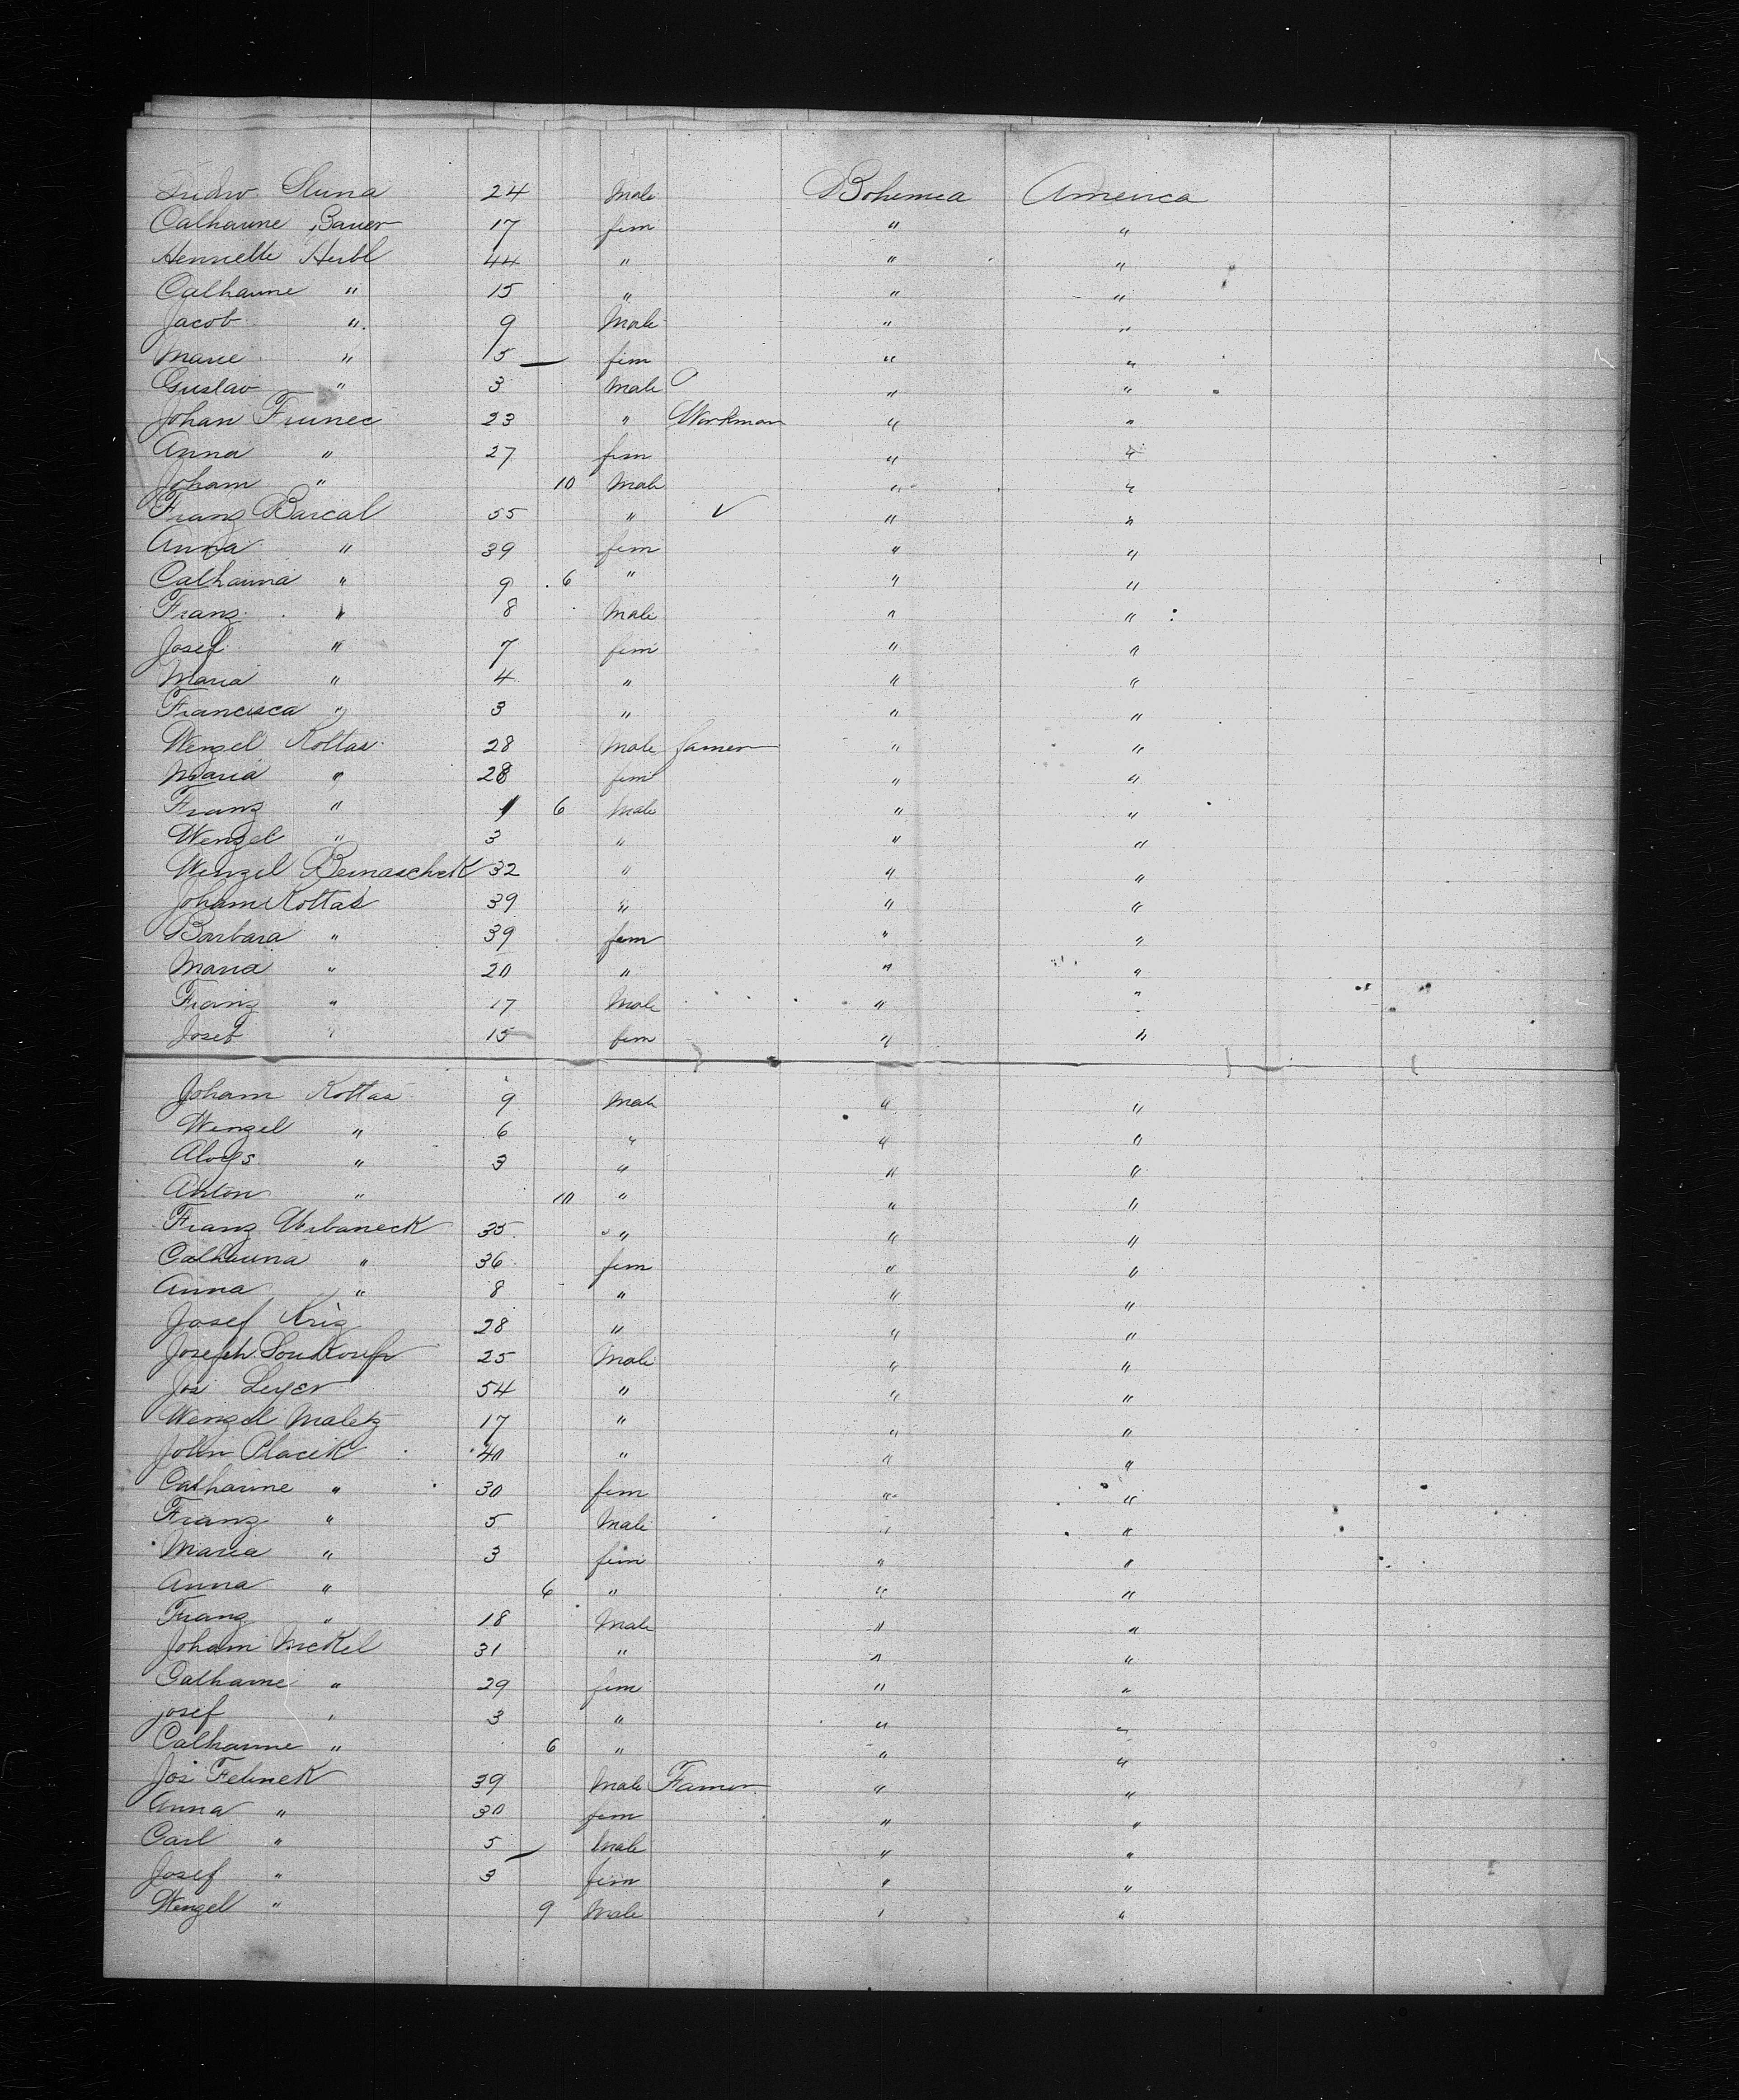 Sluna 24 Male Bohemia America
Catharine Bauer 17 fem " "
Henriette Heibl 44 " " "
Catharine " 15 " " "
Jacob " 9 Male " "
Marie " 5 — fem " "
Gustav " 3 Male " "
Johan 23 " Workman " "
Anna " 27 fem " "
Joham " 10 Male " "
Franz Barcal 55 " ✓ " "
Anna " 39 fem " "
Catharina " 9 6 " " "
Franz " 8 Male " "
Josef " 7 fem " "
Maria " 4 " " "
Francisca " 3 " " "
Wenzel Kottas 28 Male farmer " "
Maria " 28 fem " "
Franz " 1 6 Male " "
Wenzel " 3 " " "
Wenzel Bernaschek 32 " " "
Joham Kottas 39 " " "
Barbara " 39 fem " "
Maria " 20 " " "
Franz " 17 Male " "
Josef " 15 fem " "
Joham Kottas 9 Male " "
Wenzel " 6 " " "
Aloys " 3 " " "
Anton " 10 " " "
Franz Urbaneck 35 " " "
Catharina " 36 fem " "
Anna " 8 " " "
Josef Kriz 28 " " "
Joseph Soukoup 25 Male " "
Jos Leyer 54 " " "
Wenzel Maletz 17 " " "
John Placek 40 " " "
Catharine " 30 fem " "
Franz " 5 Male " "
Maria " 3 fem " "
Anna " 6 " " "
Franz " 18 Male " "
Joham 31 " " "
Catharine " 29 fem " "
Josef " 3 " " "
Catharine " 6 " " "
Jos Felinek 39 Male Farmer " "
Anna " 30 fem " "
Carl " 5 — Male " "
Josef " 3 fem " "
Wenzel " 9 Male " "